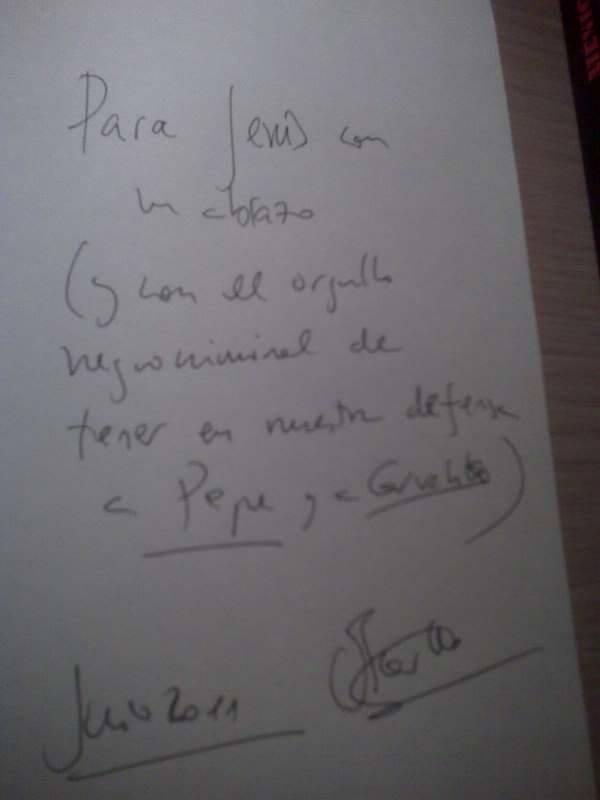 Para Jesús con
un abrazo
(y con el orgullo
negrocriminal de
tener en nuestra defensa
a Pepe y a Carvalho)
Junio 2011